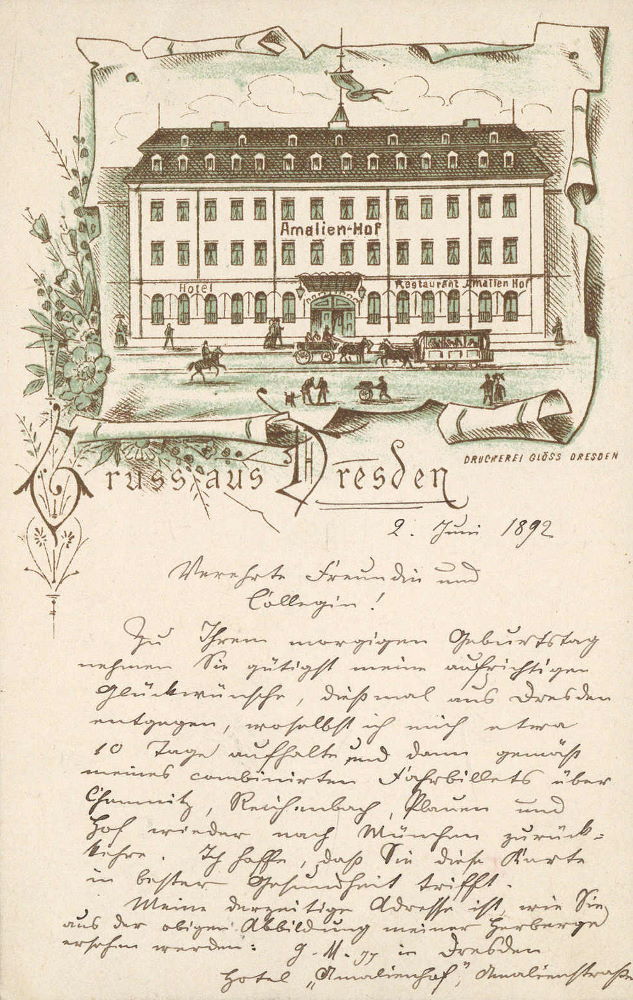 Amalien-Hof
Hotel
Restaurant Amalien Hof
Gruss aus Dresden
DRUCKEREI GLÖSS DRESDEN
2. Juni 1892
Verehrte Freundin und
Collegin!
Zu Ihrem morgigen Geburtstag
nehmen Sie gütigst meine aufrichtigen
Glückwünsche, dießmal aus Dresden
entgegen, woselbst ich mich etwa
10 Tage aufhalte und dann gemäß
meines combinirten Fahrbillets über
Chemnitz, Reichenbach, Plauen und
Hof wieder nach München zurück=
kehre. Ich hoffe, daß Sie diese Karte
in bester Gesundheit trifft.
Meine derzeitige Adresse ist, wie Sie
aus der obigen Abbildung meiner Herberge
ersehen werden: G. M. in Dresden
Hotel „Amalienhof", Amalienstraße